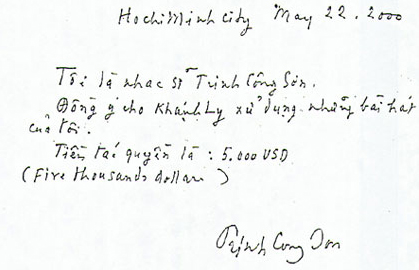 Hochiminh city May 22. 2000
Tôi là nhạc sĩ Trịnh Công Sơn.
Đồng ý cho Khánh Ly xử dụng những bài hát
của tôi.
Tiền tác quyền là : 5.000 USD
(Five thousands dollars)
Trịnh Cong Son